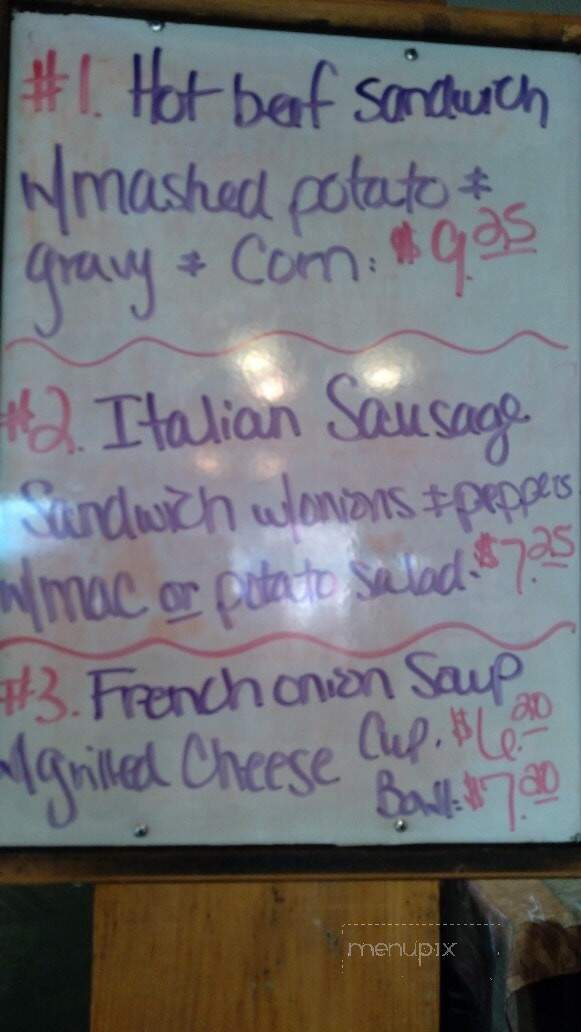 #1. Hot beef sandwich
w/mashed potato &
gravy & Corn: $9.25
#2. Italian Sausage
Sandwich w/onions & peppers
w/mac or potato salad. $7.25
#3. French onion Soup
w/grilled Cheese Cup. $6.20
Bowl: $7.20
menupix